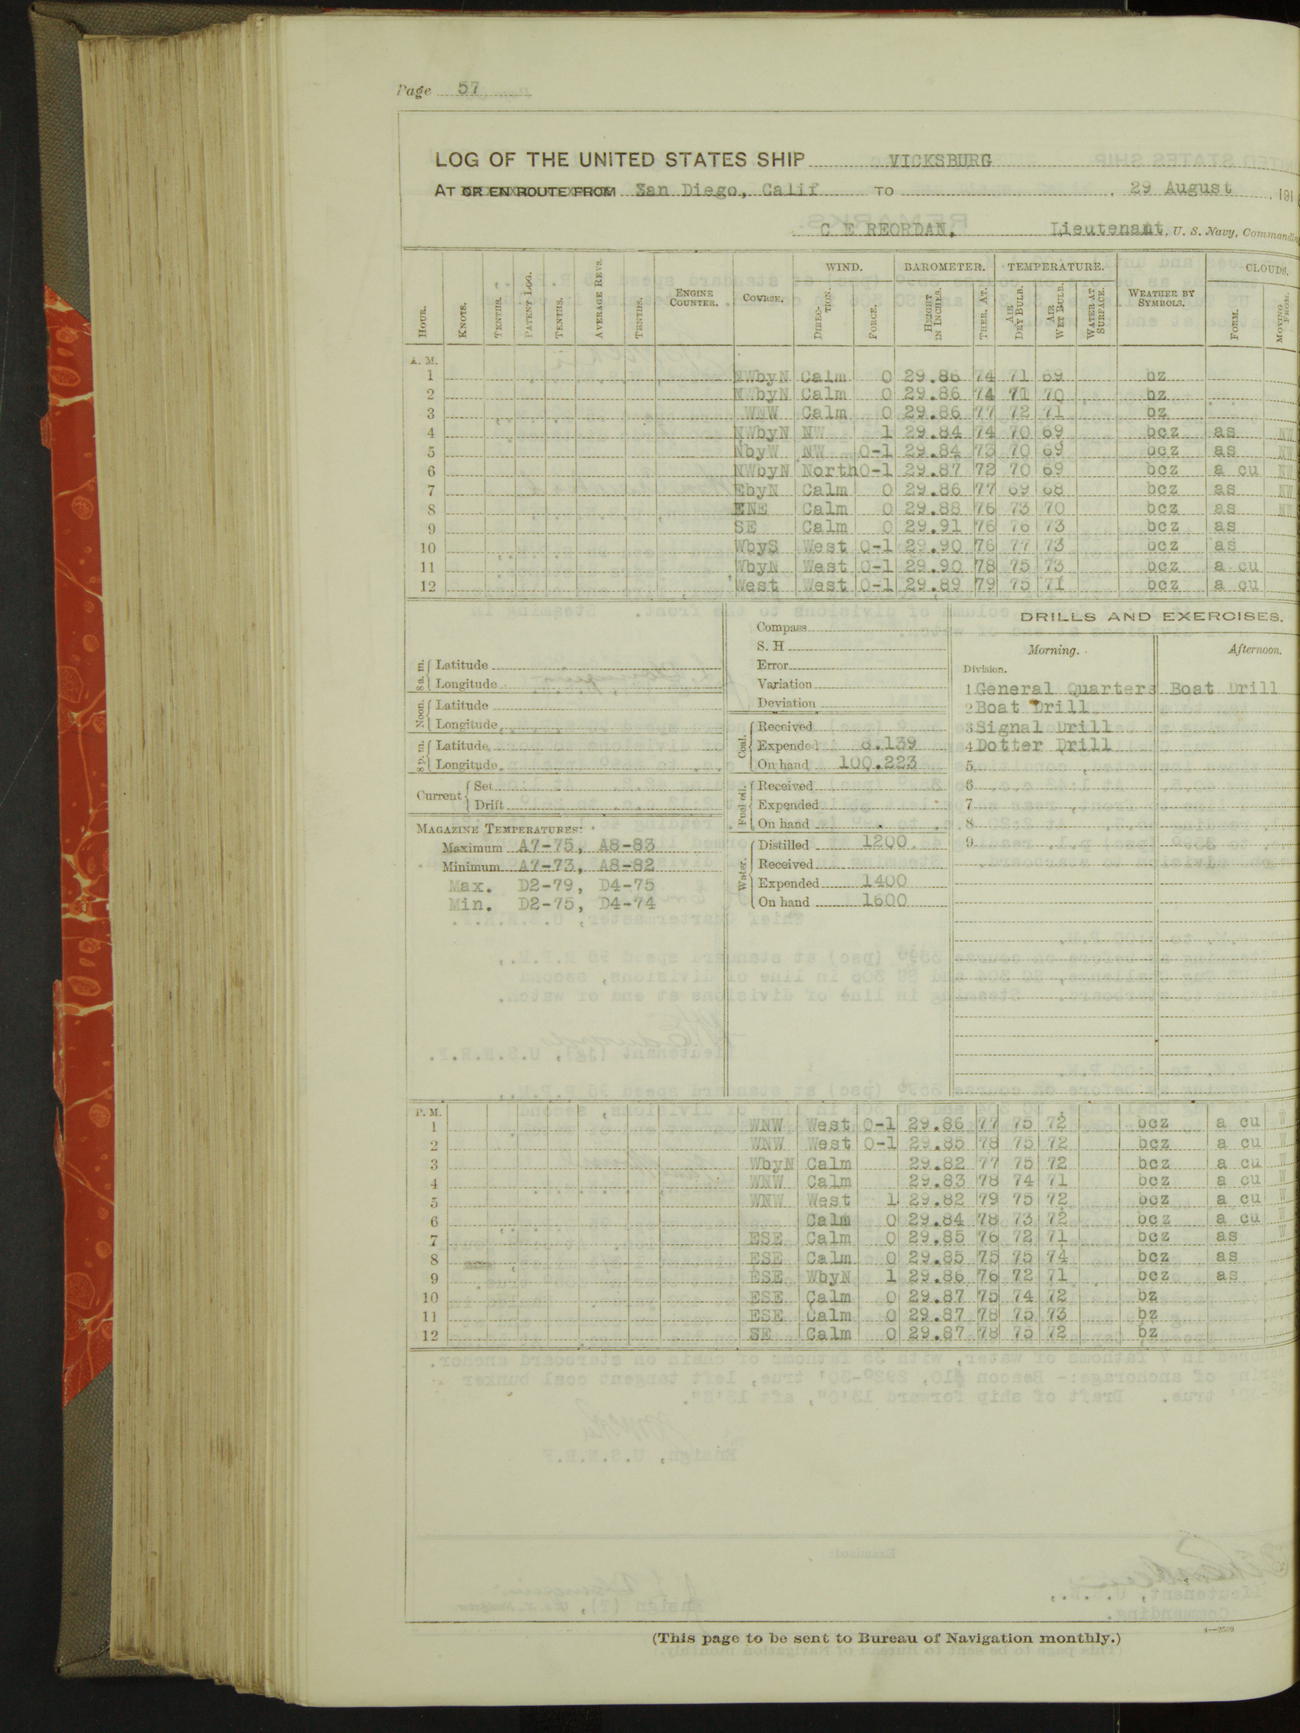 Page 57
LOG OF THE UNITED STATES SHIP VICKSBURG
AT OR EN ROUTE FROM San Diego, Calif TO , 29 August , 191
C E REORDAN, Lieutenant, U. S. Navy, Commanding
HOUR. KNOTS. TENTHS. PATENT LOG. TENTHS. AVERAGE REVS. TENTHS. ENGINE COUNTER. COURSE. WIND. DIRECTION. FORCE. BAROMETER. HEIGHT IN INCHES. THER. AT. TEMPERATURE. AIR DRY BULB. AIR WET BULB. WATER AT SURFACE. WEATHER BY SYMBOLS. CLOUDS. FORM. MOVING FROM.
A. M.
1 NWbyN Calm 0 29.86 74 71 69 bz
2 NWbyN Calm 0 29.86 74 71 70 bz
3 WNW Calm 0 29.86 77 72 71 bz
4 NWbyN NW 1 29.84 74 70 69 bcz as NW
5 NbyW NW 0-1 29.84 73 70 69 bcz as NW
6 NWbyN North 0-1 29.87 72 70 69 bcz a cu NW
7 EbyN Calm 0 29.86 77 69 68 bcz as NW
8 ENE Calm 0 29.88 76 73 70 bcz as NW
9 SE Calm 0 29.91 76 76 73 bcz as
10 WbyS West 0-1 29.90 76 77 73 bcz as
11 WbyN West 0-1 29.90 78 75 73 bcz a cu
12 West West 0-1 29.89 79 75 71 bcz a cu
8 a. m. Latitude
Longitude
Noon. Latitude
Longitude
8 p. m. Latitude
Longitude
Current Set
Drift
MAGAZINE TEMPERATURES:
Maximum A7-75, A8-83
Minimum A7-73, A8-82
Max. D2-79, D4-75
Min. D2-75, D4-74
Compass
S. H
Error
Variation
Deviation
Coal. Received
Expended 8.139
On hand 100.223
Fuel oil. Received
Expended
On hand
Water. Distilled 1200
Received
Expended 1400
On hand 1600
DRILLS AND EXERCISES.
Morning. Afternoon.
Division.
1 General Quarters Boat Drill
2 Boat Drill
3 Signal Drill
4 Dotter Drill
5
6
7
8
9
P. M.
1 WNW West 0-1 29.86 77 75 72 bcz a cu W
2 WNW West 0-1 29.85 78 75 72 bcz a cu W
3 WbyN Calm 29.82 77 75 72 bcz a cu W
4 WNW Calm 29.83 78 74 71 bcz a cu W
5 WNW West 1 29.82 79 75 72 bcz a cu W
6 Calm 0 29.84 78 73 72 bcz a cu W
7 ESE Calm 0 29.85 76 72 71 bcz as W
8 ESE Calm 0 29.85 75 75 74 bcz as
9 ESE WbyN 1 29.86 76 72 71 bcz as
10 ESE Calm 0 29.87 75 74 72 bz
11 ESE Calm 0 29.87 78 75 73 bz
12 SE Calm 0 29.87 78 75 72 bz
(This page to be sent to Bureau of Navigation monthly.)